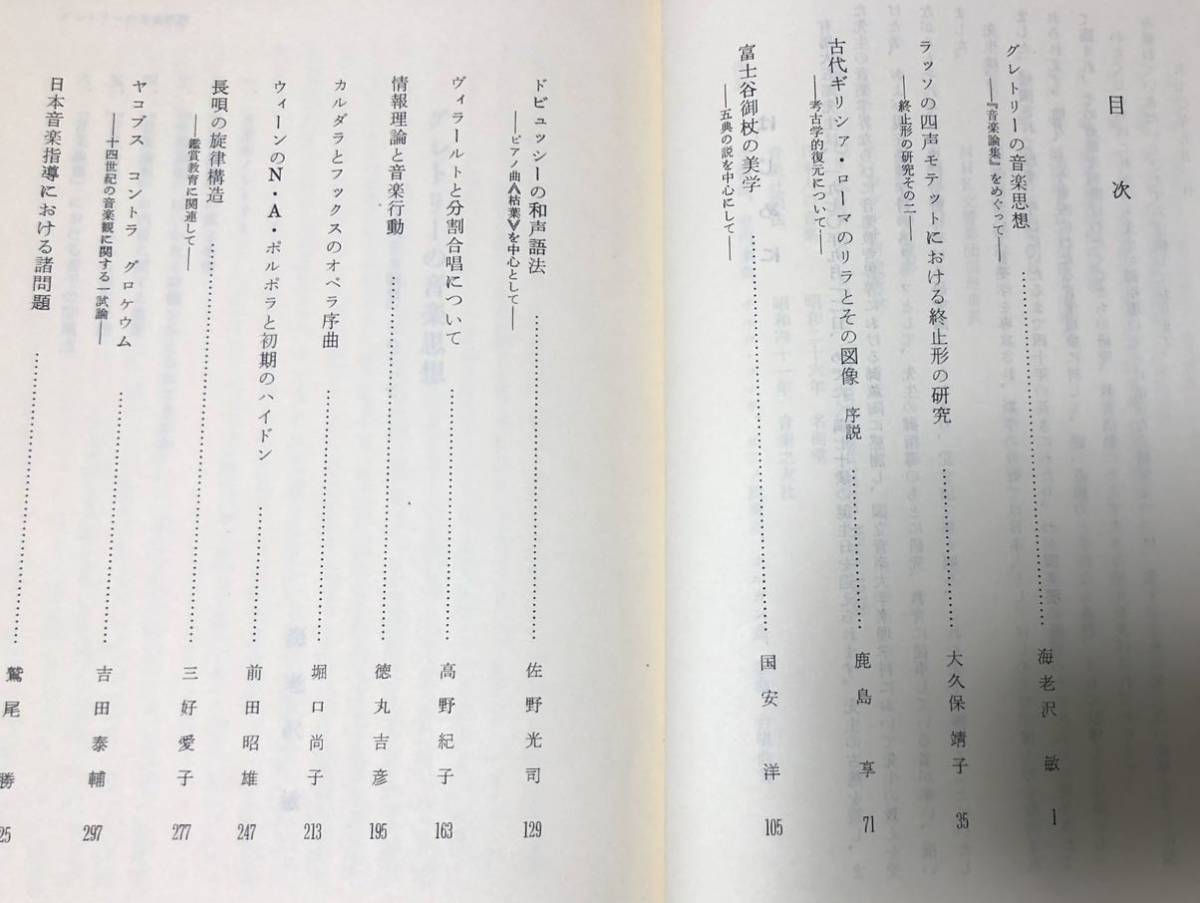 目次
グレトリーの音楽思想……海老沢 敏 1
――『音楽論集』をめぐって――
ラッソの四声モテットにおける終止形の研究……大久保 靖子 35
――終止形の研究その二――
古代ギリシア・ローマのリラとその図像 序説……鹿島 享 71
――考古学的復元について――
富士谷御杖の美学……国安 洋 105
――五典の説を中心にして――
ドビュッシーの和声語法……佐野光司 129
――ピアノ曲≪枯葉≫を中心として――
ヴィラールトと分割合唱について……高野紀子 163
情報理論と音楽行動……徳丸吉彦 195
カルダラとフックスのオペラ序曲……堀口尚子 213
ウィーンのN・A・ポルポラと初期のハイドン……前田昭雄 247
長唄の旋律構造……三好愛子 277
――鑑賞教育に関連して――
ヤコブス コントラ グロケウム……吉田泰輔 297
――十四世紀の音楽観に関する一試論――
日本音楽指導における諸問題……鷲尾 勝 25